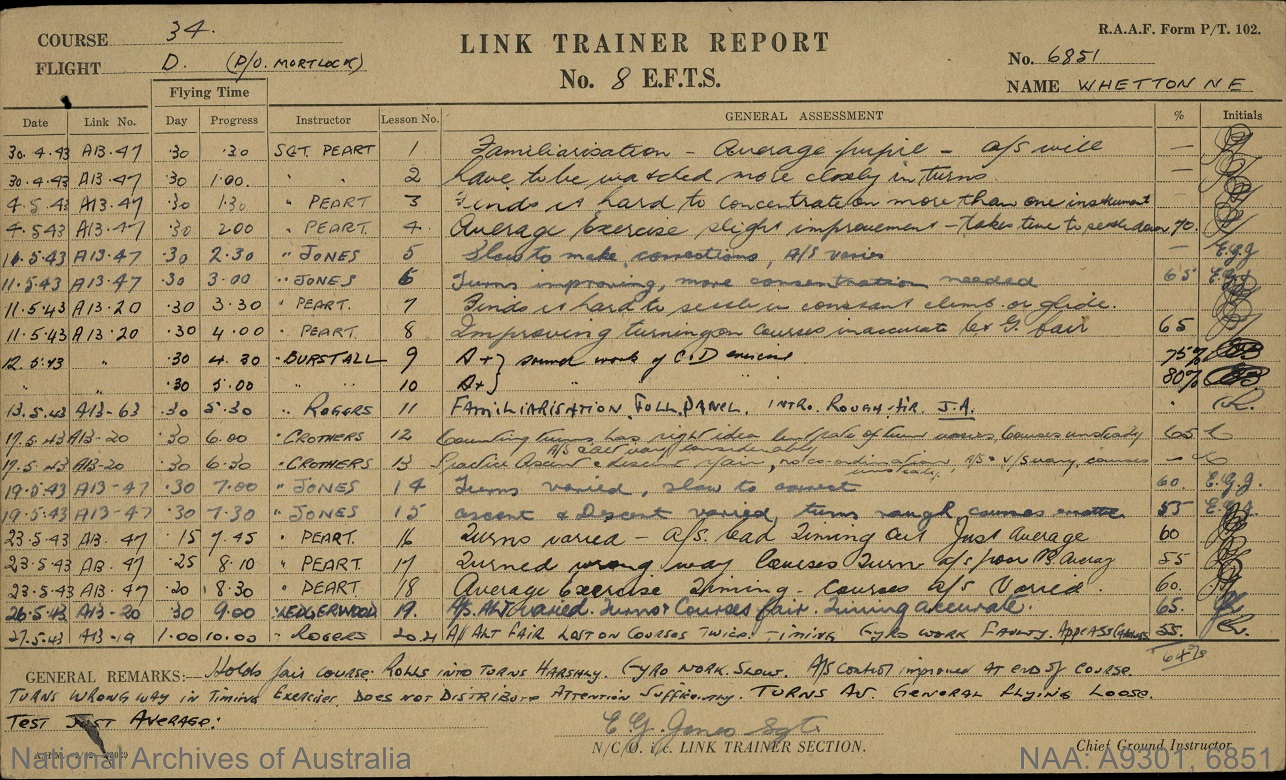 COURSE 34. LINK TRAINER REPORT R.A.A.F. Form P/T. 102.
FLIGHT D. (P/O. MORTLOCK) No. 8 E.F.T.S. No. 6851
NAME WHETTON N E
Flying Time
Date Link No. Day Progress Instructor Lesson No. GENERAL ASSESSMENT % Initials
30.4.43 A13.47 .30 .30 SGT. PEART 1 Familiarisation - Average pupil - a/s will —
30.4.43 A13.47 .30 1.00. " " 2 have to be watched more closely in turns. —
4.5.43 A13.47 .30 1.30 " PEART 3 Finds it hard to concentrate on more than one instrument —
4.5.43 A13.47 .30 2.00 " PEART. 4. Average Exercise slight improvement - takes time to settle down 70.
11.5.43 A13-47 .30 2.30 " JONES 5 Slow to make corrections, A/S varies — E.G.J
11.5.43 A13-47 .30 3.00 " JONES 6 Turns improving, more concentration needed 65 E.G.J
11.5.43 A13-20 .30 3.30 " PEART. 7 Finds it hard to settle in constant climb or glide.
11.5.43 A13-20 .30 4.00 " PEART. 8 Improving turning on courses inaccurate C & G. fair 65
12.5.43 " .30 4.30 " BURSTALL 9 A+} sound work of C.D exercise 75%
" " .30 5.00 " " 10 A+} " 80%
13.5.43 A13-63 .30 5.30 " ROGERS 11 FAMILIARISATION FULL PANEL. INTRO. ROUGH AIR J.A.
17.5.43 A13-20 .30 6.00 " CROTHERS 12 Counting turns has right idea but rate of turn varies. Courses unsteady 65
A/S & alt vary considerably
17.5.43 A13-20 .30 6.30 " CROTHERS 13 Practice Ascent & descent fair, no co-ordination, A/S & V/S vary, courses —
unsteady.
19.5.43 A13-47 .30 7.00 " JONES 14 Turns varied, slow to correct 60. E.G.J.
19.5.43 A13-47 .30 7.30 " JONES 15 ascent & Descent varied, turns rough courses erratic 55 E.G.J
23.5.43 A13.47 .15 7.45 " PEART. 16 Turns varied - A/S. bad Timing Out Just Average 60
23.5.43 A13.47 .25 8.10 " PEART 17 Turned wrong way Courses Turn a/s poor B. Averag 55
23.5.43 A13.47 .20 8.30 " PEART 18 Average Exercise Timing - Courses a/s Varied. 60.
26.5.43 A13-20 .30 9.00 " LEDGERWOOD 19. A/S. ALT varied. Turns & Courses fair. Timing accurate. 65.
27.5.43 A13-19 1.00 10.00 " ROGERS 20.21 A/S ALT FAIR LOST ON COURSES TWICE. TIMING GYRO WORK FAULTY. 55.
GENERAL REMARKS:— Holds fair course. Rolls into turns Harshly. Gyro Work. Slow. A/S control improved at end of course.
TURNS WRONG WAY IN TIMING EXERCISE. DOES NOT DISTRIBUTE ATTENTION SUFFICIENTLY. TURNS AV. GENERAL FLYING LOOSE.
TEST JUST AVERAGE:
E G Jones Sgt.
N/C O. i/c. LINK TRAINER SECTION. Chief Ground Instructor
National Archives of Australia NAA: A9301, 6851